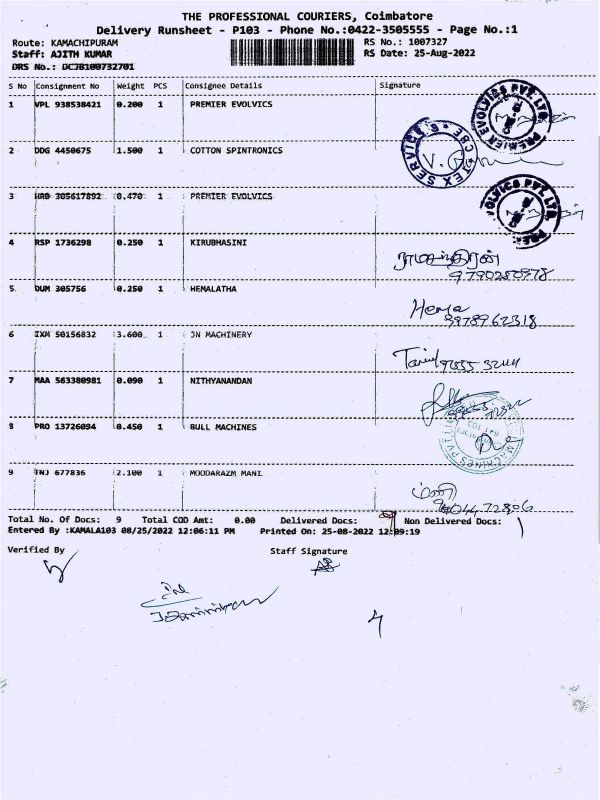 THE PROFESSIONAL COURIERS, Coimbatore
Delivery Runsheet - P103 - Phone No.:0422-3505555 - Page No.:1
Route: KAMACHIPURAM RS No.: 1007327
Staff: AJITH KUMAR RS Date: 25-Aug-2022
DRS No.: DCJB100732701
S No Consignment No Weight PCS Consignee Details Signature
1 VPL 938538421 0.200 1 PREMIER EVOLVICS
PREMIER EVOLVICS PVT. LTD.
2 DDG 4450675 1.500 1 COTTON SPINTRONICS
TEX SERVICE CBE
3 HRD 305617892 0.470 1 PREMIER EVOLVICS
4 RSP 1736298 0.250 1 KIRUBHASINI
9790280978
5 DUM 305756 0.250 1 HEMALATHA
Hema
6 IXM 50156832 3.600 1 JN MACHINERY
7 MAA 563380981 0.090 1 NITHYANANDAN
8 PRO 13726094 0.450 1 BULL MACHINES
MACHINES PVT
9 TNJ 677836 2.100 1 MOODARAZM MANI
மணி
Total No. Of Docs: 9 Total COD Amt: 0.00 Delivered Docs: Non Delivered Docs:
Entered By :KAMALA103 08/25/2022 12:06:11 PM Printed On: 25-08-2022 12:09:19
Verified By Staff Signature